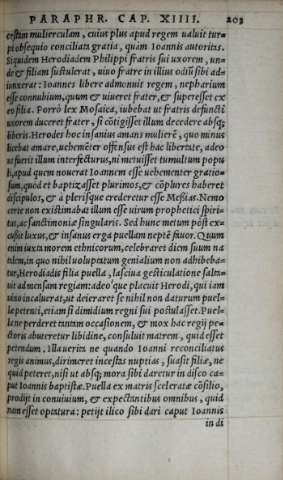 PARAPHR. CAP. XIIII. 203
cestam mulierculam, cuius plus apud regem ualuit tur⸗
pi obsequio conciliata gratia, quam Ioannis autoritas.
Siquidem Herodiadem Philippi fratris sui uxorem, un⸗
de & filiam sustulerat, uiuo fratre in illius odiũ sibi ad⸗
iunxerat: Ioannes libere admonuit regem, nepharium
esse connubium, quum & uiueret frater, & superesset ex
eo filia. Porrò lex Mosaica, iubebat ut fratris defuncti
uxorem duceret frater, si cõtigisset illum decedere absq;
liberis. Herodes hoc insanius amans mulierẽ, quo minus
licebat amare, uehemẽter offensus est hac libertate, adeo
ut fuerit illum interfecturus, ni metuisset tumultum popu
li, apud quem nouerat Ioannem esse uehementer gratio⸗
sum, quòd et baptizasset plurimos, & cõplures haberet
discipulos, & a plerisque crederetur esse Messias. Nemo
certe non existimabat illum esse uirum prophetici spiri⸗
tus, ac sanctimoniæ singularis. Sed hunc metum pòst ex⸗
cussit luxus, & insanus erga puellam neptẽ fauor. Quum
enim iuxta morem ethnicorum, celebraret diem suum na
talem, in quo nihil uoluptatum genialium non adhibeba⸗
tur, Herodiadis filia puella, lasciua gesticulatione salta⸗
uit ad mensam regiam: adeo'que placuit Herodi, qui iam
uino incaluerat, ut deieraret se nihil non daturum puel⸗
læ petenti, etiam si dimidium regni sui postulasset. Puel⸗
la ne perderet tantam occasionem, & mox hac regij pe⸗
ctoris abuteretur libidine, consuluit matrem, quid esset
petendum. Illa uerita ne quando Ioanni reconciliatus
regis animus, dirimeret incestas nuptias, suasit filiæ, ne
quid peteret, nisi ut absq; mora sibi daretur in disco ca⸗
put Ioannis baptistæ. Puella ex matris sceleratæ cõsilio,
prodijt in conuiuium, & expectantibus omnibus, quid
nam esset optatura: petijt ilico sibi dari caput Ioannis
in di